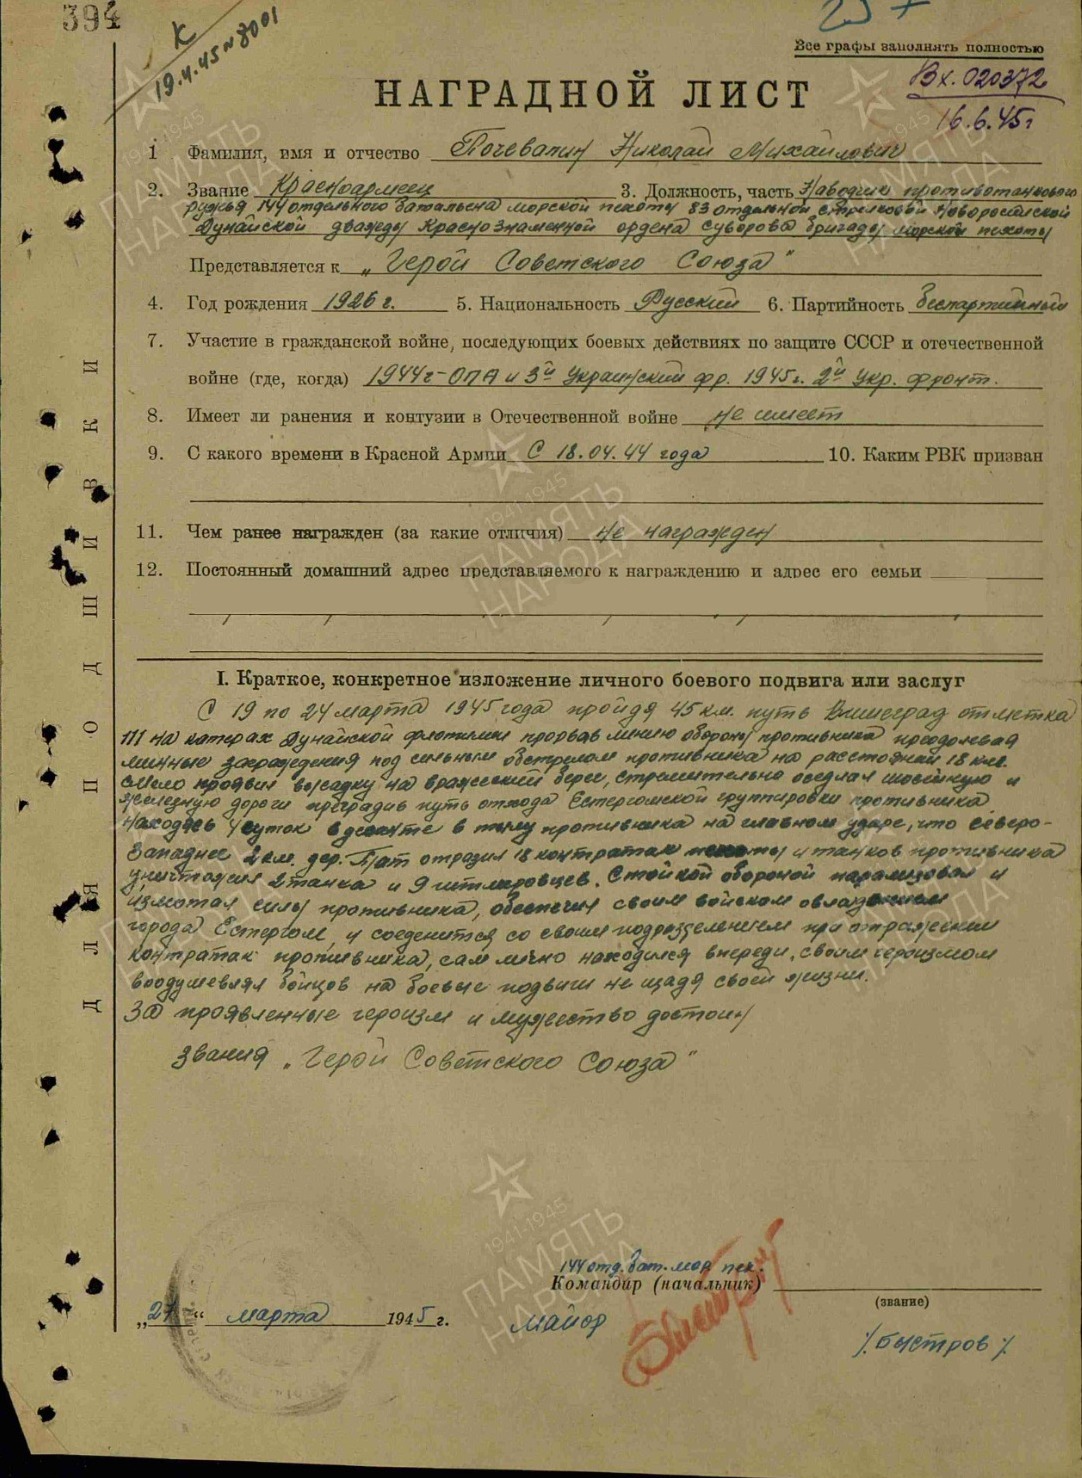 394
К
19.4.45 № 8001
25 +
Все графы заполнять полностью
Вх. 020372
16.6.45г
НАГРАДНОЙ ЛИСТ
1 Фамилия, имя и отчество Почевалин Николай Михайлович
2. Звание Красноармеец 3. Должность, часть Наводчик противотанкового
ружья 144 отдельного батальена морской пехоты 83 отдельной стрелковой Новоросийской
Дунайской дважды Краснознаменной ордена Суворова бригады морской пехоты
Представляется к „Герой Советского Союза"
4. Год рождения 1926 г. 5. Национальность Русский 6. Партийность беспартийный
7. Участие в гражданской войне, последующих боевых действиях по защите СССР и отечественной
войне (где, когда) 1944г-ОПА и 3й Украинский фр. 1945г. 2й Укр. фронт.
8. Имеет ли ранения и контузии в Отечественной войне не имеет
9. С какого времени в Красной Армии С 18.04.44 года 10. Каким РВК призван
11. Чем ранее награжден (за какие отличия) не награжден
12. Постоянный домашний адрес представляемого к награждению и адрес его семьи
I. Краткое, конкретное изложение личного боевого подвига или заслуг
С 19 по 24 марта 1945 года пройдя 45 км. путь Вышеград отметка
111 на катерах Дунайской флотилии прорвав линию обороны противника преодолевая
минные заграждения под сильным обстрелом противника на расстоянии 18 км.
Смело провёл высадку на вражеский берег, стремительно оседлал шосейную и
железную дороги преградив путь отхода Естергомской группировки противника
находясь 4 суток в десанте в тылу противника на главном ударе, что северо-
западнее 2 км. дер. Тат отразил 18 контратак пехоты и танков противника
уничтожил 2 танка и 9 гитлеровцев. Стойкой обороной парализовал и
измотал силы противника, обеспечил своим войскам овладением
города Естергом, и соеденится со своим подразделением при отражении
контратак противника, сам лично находился впереди, своим героизмом
воодушевлял бойцов на боевые подвиги не щадя своей жизни.
За проявленные героизм и мужество достоин
звания „Герой Советского Союза"
144 отд. бат. мор пех.
Командир (начальник)
(звание)
„27" марта 1945 г. майор
/ Быстров /
ДЛЯ ПОДШИВКИ
1941-1945
ПАМЯТЬ
НАРОДА